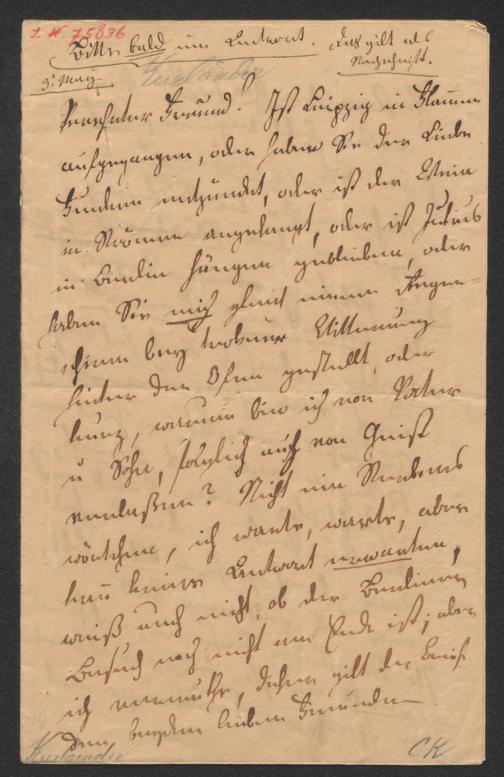 I. N. 75836
Bitte bald um Antwort. Das gilt als
Nachschrift.
3t. May
Kurländer
Verehrter Freund! Ist Leipzig in Flammen
aufgegangen, oder haben Sie der Liebe
Zundern entzündet, oder ist der Wein
in Strömen angelangt, oder ist Julius
in Berlin hängen geblieben, oder
haben Sie mich gleich einem Regen-
schirm bey trockner Witterung
hinter den Ofen gestellt, oder
kurz, warum bin ich von Vater
u Sohn, folglich auch von Geist
verlaßen? Nicht ein Sterbens
wörtchen, ich warte, warte, aber
kann keine Antwort erwarten,
weiß auch nicht, ob der Berliner
Besuch noch nicht am Ende ist; aber
ich vermuthe, daher gilt der Brief
den beyden lieben Freunden
Kurländer
CK